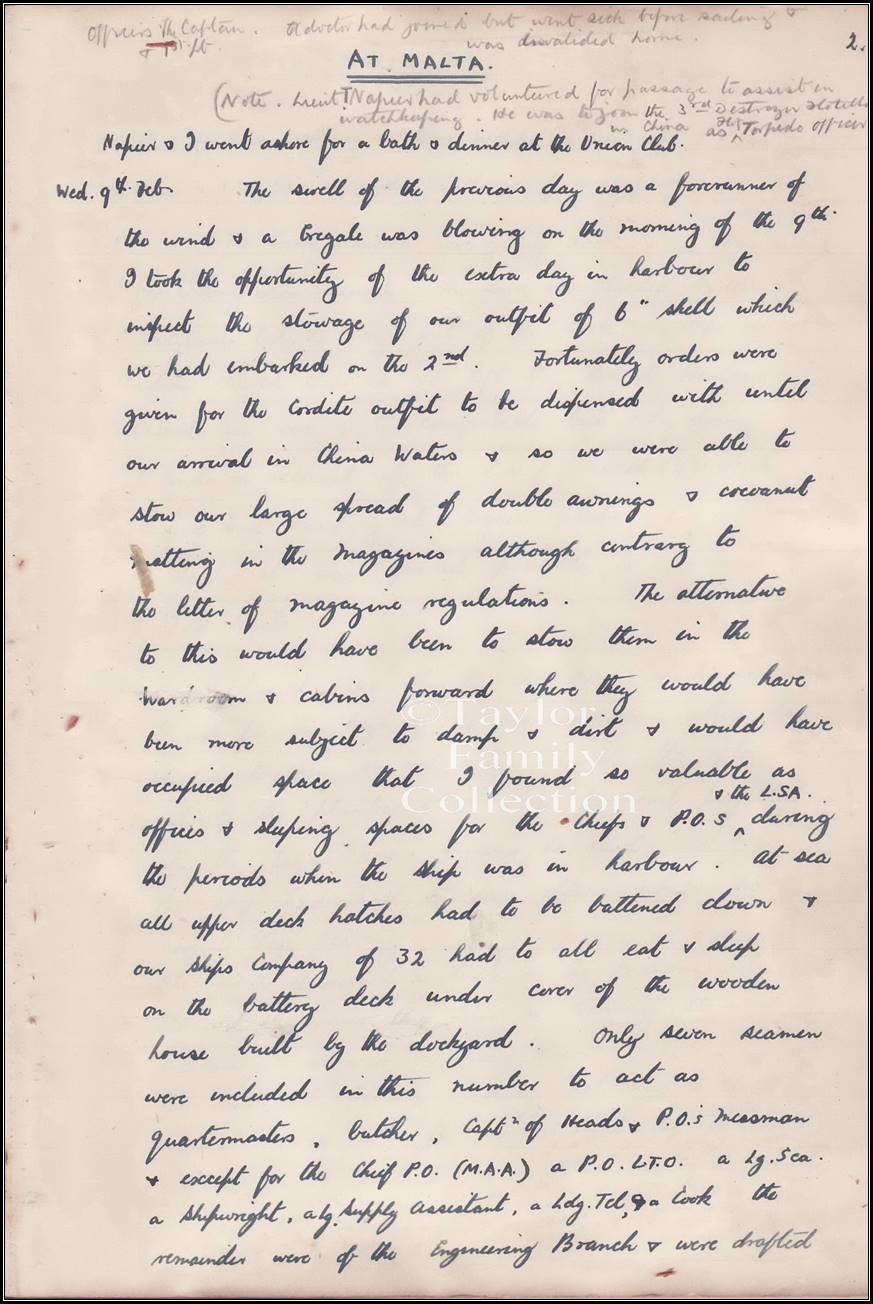 Officers The Captain. A doctor had joined but went sick before sailing &
& 1st Lt. was invalided home.
2.
AT MALTA.
(Note. Lieut Napier had volunteered for passage to assist in
watchkeeping. He was to join the 3rd Destroyer Flotilla
in China as Torpedo Officer
Napier & I went ashore for a bath & dinner at the Union Club.
Wed. 9th Feb The swell of the previous day was a forerunner of
the wind & a Gregale was blowing on the morning of the 9th.
I took the opportunity of the extra day in harbour to
inspect the stowage of our outfit of 6" shell which
we had embarked on the 2nd. Fortunately orders were
given for the Cordite outfit to be dispensed with until
our arrival in China Waters & so we were able to
stow our large spread of double awnings & cocoanut
matting in the Magazines although contrary to
the letter of magazine regulations. The alternative
to this would have been to stow them in the
Wardroom & cabins forward where they would have
been more subject to damp & dirt & would have
occupied space that I found so valuable as
& the L.S.A.
offices & sleeping spaces for the Chiefs & P.O.s ^ during
the periods when the ship was in harbour. At sea
all upper deck hatches had to be battened down &
our Ships Company of 32 had to all eat & sleep
on the battery deck under cover of the wooden
house built by the dockyard. Only seven seamen
were included in this number to act as
quartermasters, butcher, Captn of Heads & P.O.'s Messman
& except for the Cheif P.O. (M.A.A.) a P.O. L.T.O. a Lg. Sea.
a Shipwright, a Lg. Supply Assistant, a Ldg. Tel, & a Cook the
remainder were of the Engineering Branch & were drafted
©Taylor
Family
Collection